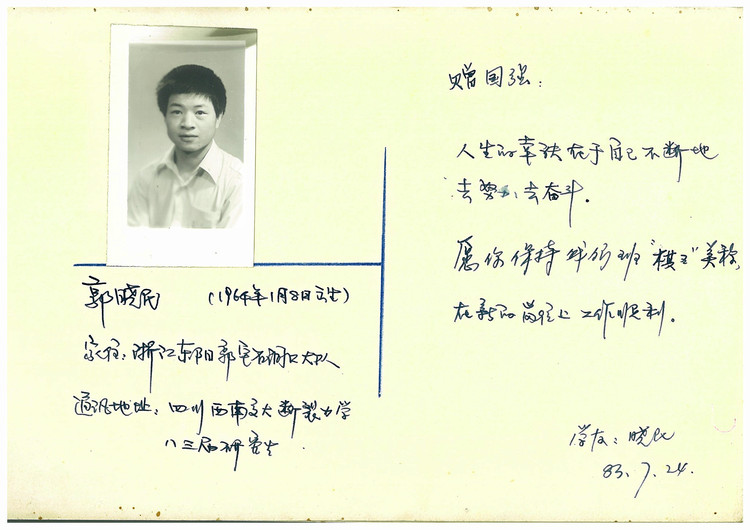 郭晓民 (1964年1月8日出生)
家住:浙江东阳郭宅石洞口大队
通讯地址:四川西南交大断裂力学
八三届研究生
赠国强:
人生的幸福在于自己不断地
去努力、去奋斗。
愿你保持 班“棋王”美称,
在新的岗位上工作顺利。
学友:晓民
83.7.24.